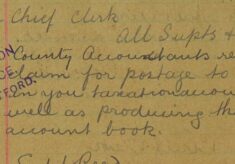 Chief Clerk
All Supts &
County Accountants re
claim for postage to
in you taxation accou
well as producing th
account book.